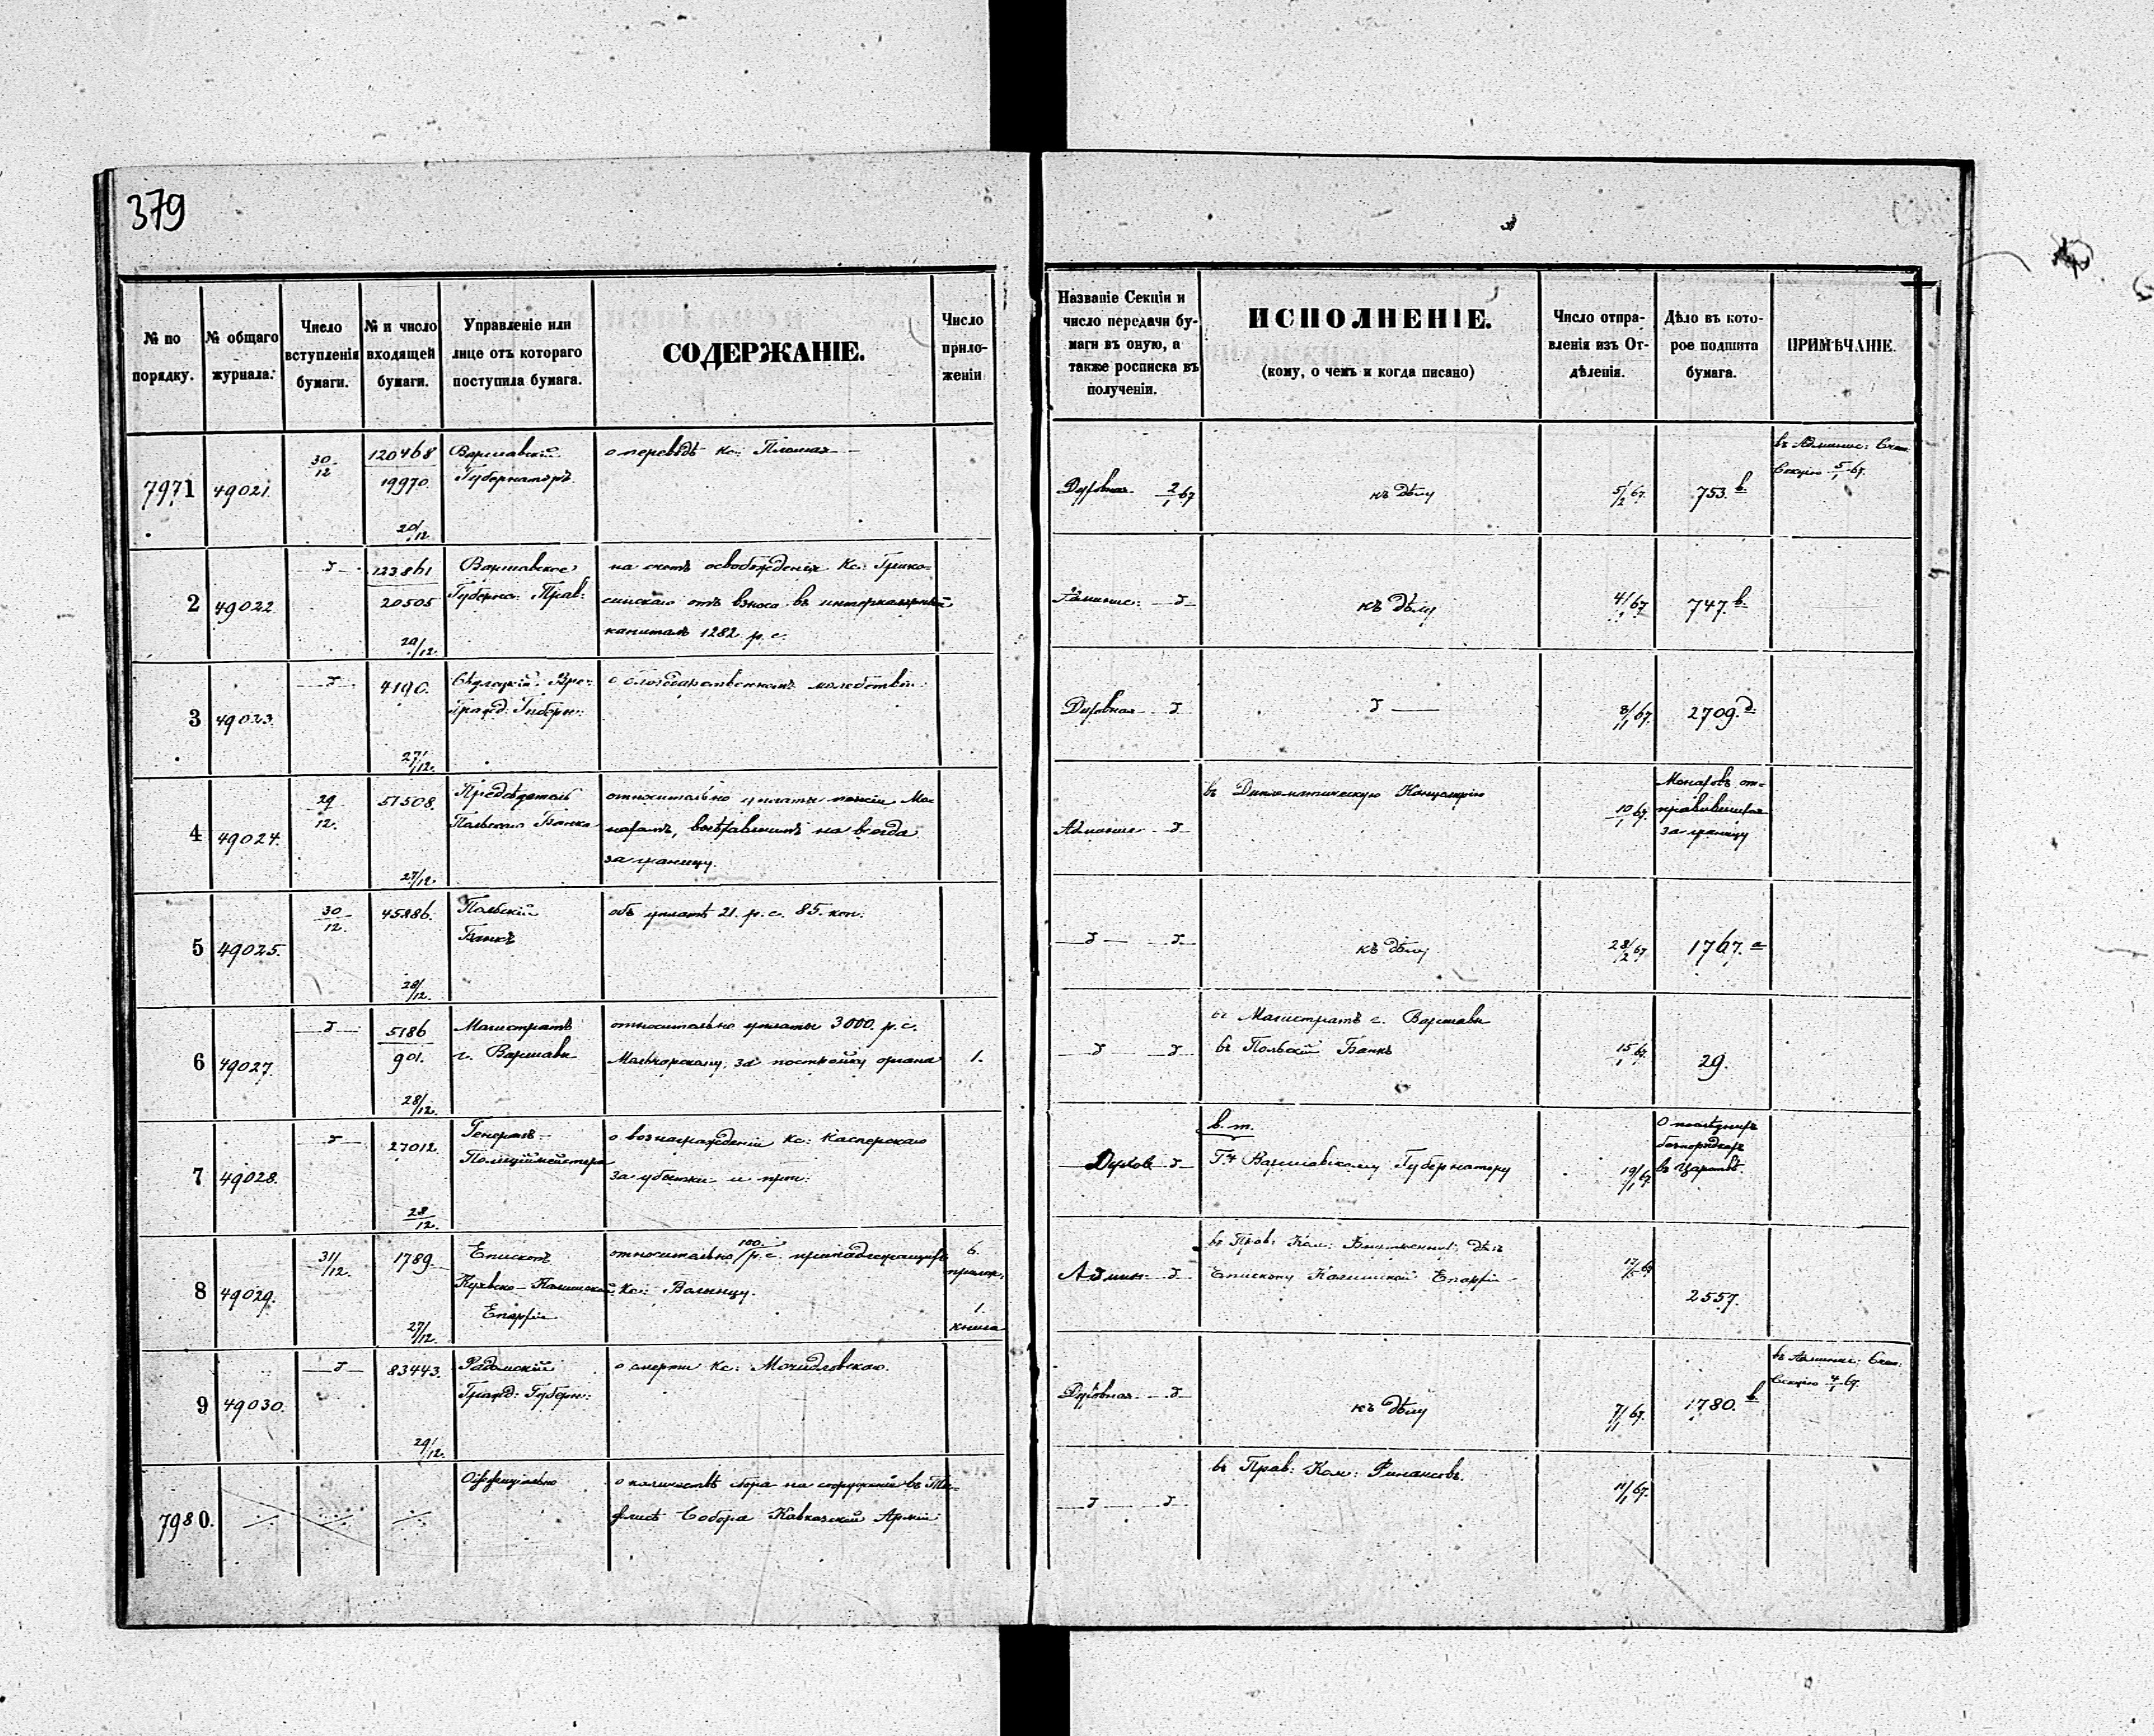 379
№ по порядку.
№ общаго журнала.
Число вступленія бумаги.
№ и число входящей бумаги.
Управленіе или лице отъ котораго поступила бумага.
СОДЕРЖАНІЕ.
Число прило-
женіи
Названіе Секціи и
число передачи бу-
маги въ оную, а
также росписка въ
полученіи.
ИСПОЛНЕНІЕ.
(кому, о чемъ и когда писано)
Число отпра-
вленія изъ От-
дѣленія.
Дѣло въ кото-
рое подшита
бумага.
ПРИМѢЧАНІЕ.
7971 49021. 30/12 120468 19970. 20/12.
Варшавскій
Губернаторъ.
о переводѣ Кс:
Духовная 2/1 67
къ дѣлу
5/2 67.
753. в.
въ Админис:
Секцію 5/1 67.
2 49022. 123861 20505 29/12.
Варшавское
Губернс: Прав:
на счетъ освобожденія Кс:
отъ взноса въ интеркалярный
капиталъ 1282 р. с.
къ дѣлу
4/1 67.
747. в.
3 49023. 4190. 27/12.
Гражд: Губерн:
о благодарственномъ молебствіи.
Духовная
8/1 67.
2709. д.
4 49024. 29/12. 51508. 27/12.
Предсѣдатель
Польскаго Банка
относительно уплаты пенсіи Мо-
нахамъ, на всегда
за границу.
Админис
въ Дипломатическую Канцелярію
10/1 67.
Монаховъ от-
правившихся
за границу
5 49025. 30/12. 45886. 28/12.
Польскій
Банкъ
объ уплатѣ 21. р. с. 85. коп.
къ дѣлу
28/2 67
1767. а
6 49027. 5186 901. 28/12.
Магистратъ
г. Варшавы
относительно уплаты 3000. р. с.
за постройку органа
1.
въ Магистратъ г. Варшавы
въ Польскій Банкъ
15/1 67.
29.
7 49028. 27012. 28/12.
Генералъ-
Полиціймейстера
о вознагражденіи Кс: Касперскаго
за убытки и проч:
Духов
в. т.
Гну Варшавскому Губернатору
19/1 67.
О послѣднихъ
безпорядкахъ
въ Царствѣ.
8 49029. 31/12. 1789. 27/12.
Епископъ
Куявско-Калишской
Епархіи
относительно 100. р. с. принадлежащихъ
Кс: Волынцу.
6.
прилож.
1.
книга
Админ.
въ Прав: Ком: дѣлъ
Епископу Калишской Епархіи
2557.
9 49030. 83443. 29/12.
Радомскій
Гражд: Губерн:
о смерти Кс: Мочидловскаго.
Духовная
къ дѣлу
7/1 67.
1780. в
въ Админис:
Секцію 4/1 67.
7980.
Оффиціально
о количествѣ сбора на сооруженіе въ Ти-
флисѣ Собора Кавказской Арміи
въ Прав: Ком: Финансовъ.
11/1 67.